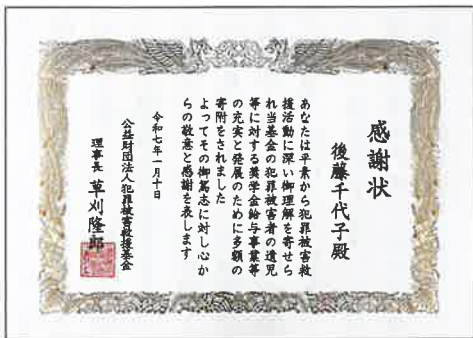 感謝状
後藤千代子殿
あなたは平素から犯罪被害救
援活動に深い御理解を寄せら
れ当基金の犯罪被害者の遺児
等に対する奨学金給与事業等
の充実と発展のために多額の
寄附をされました
よってその御篤志に対し心か
らの敬意と感謝を表します
令和七年一月十日
公益財団法人犯罪被害救援基金
理事長 草刈隆郎